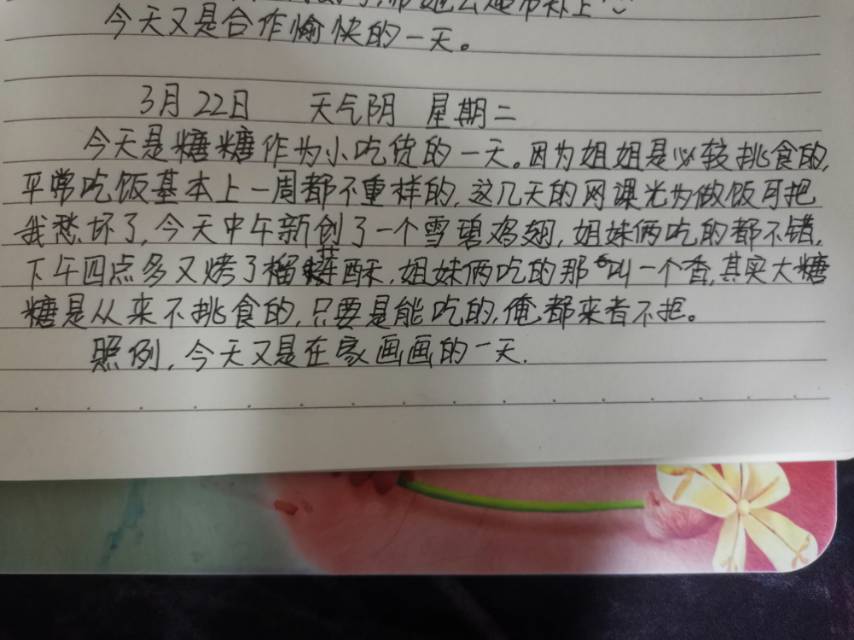 去超市补上
今天又是合作愉快的一天。
3月22日 天气阴 星期二
今天是糖糖作为小吃货的一天。因为姐姐是比较挑食的,
平常吃饭基本上一周都不重样的,这几天的网课光为做饭可把
我愁坏了,今天中午新创了一个雪碧鸡翅,姐妹俩吃的都不错,
下午四点多又烤了榴莲酥,姐妹俩吃的那叫一个香,其实大糖
糖是从来不挑食的,只要是能吃的,俺都来者不拒。
照例,今天又是在家画画的一天.